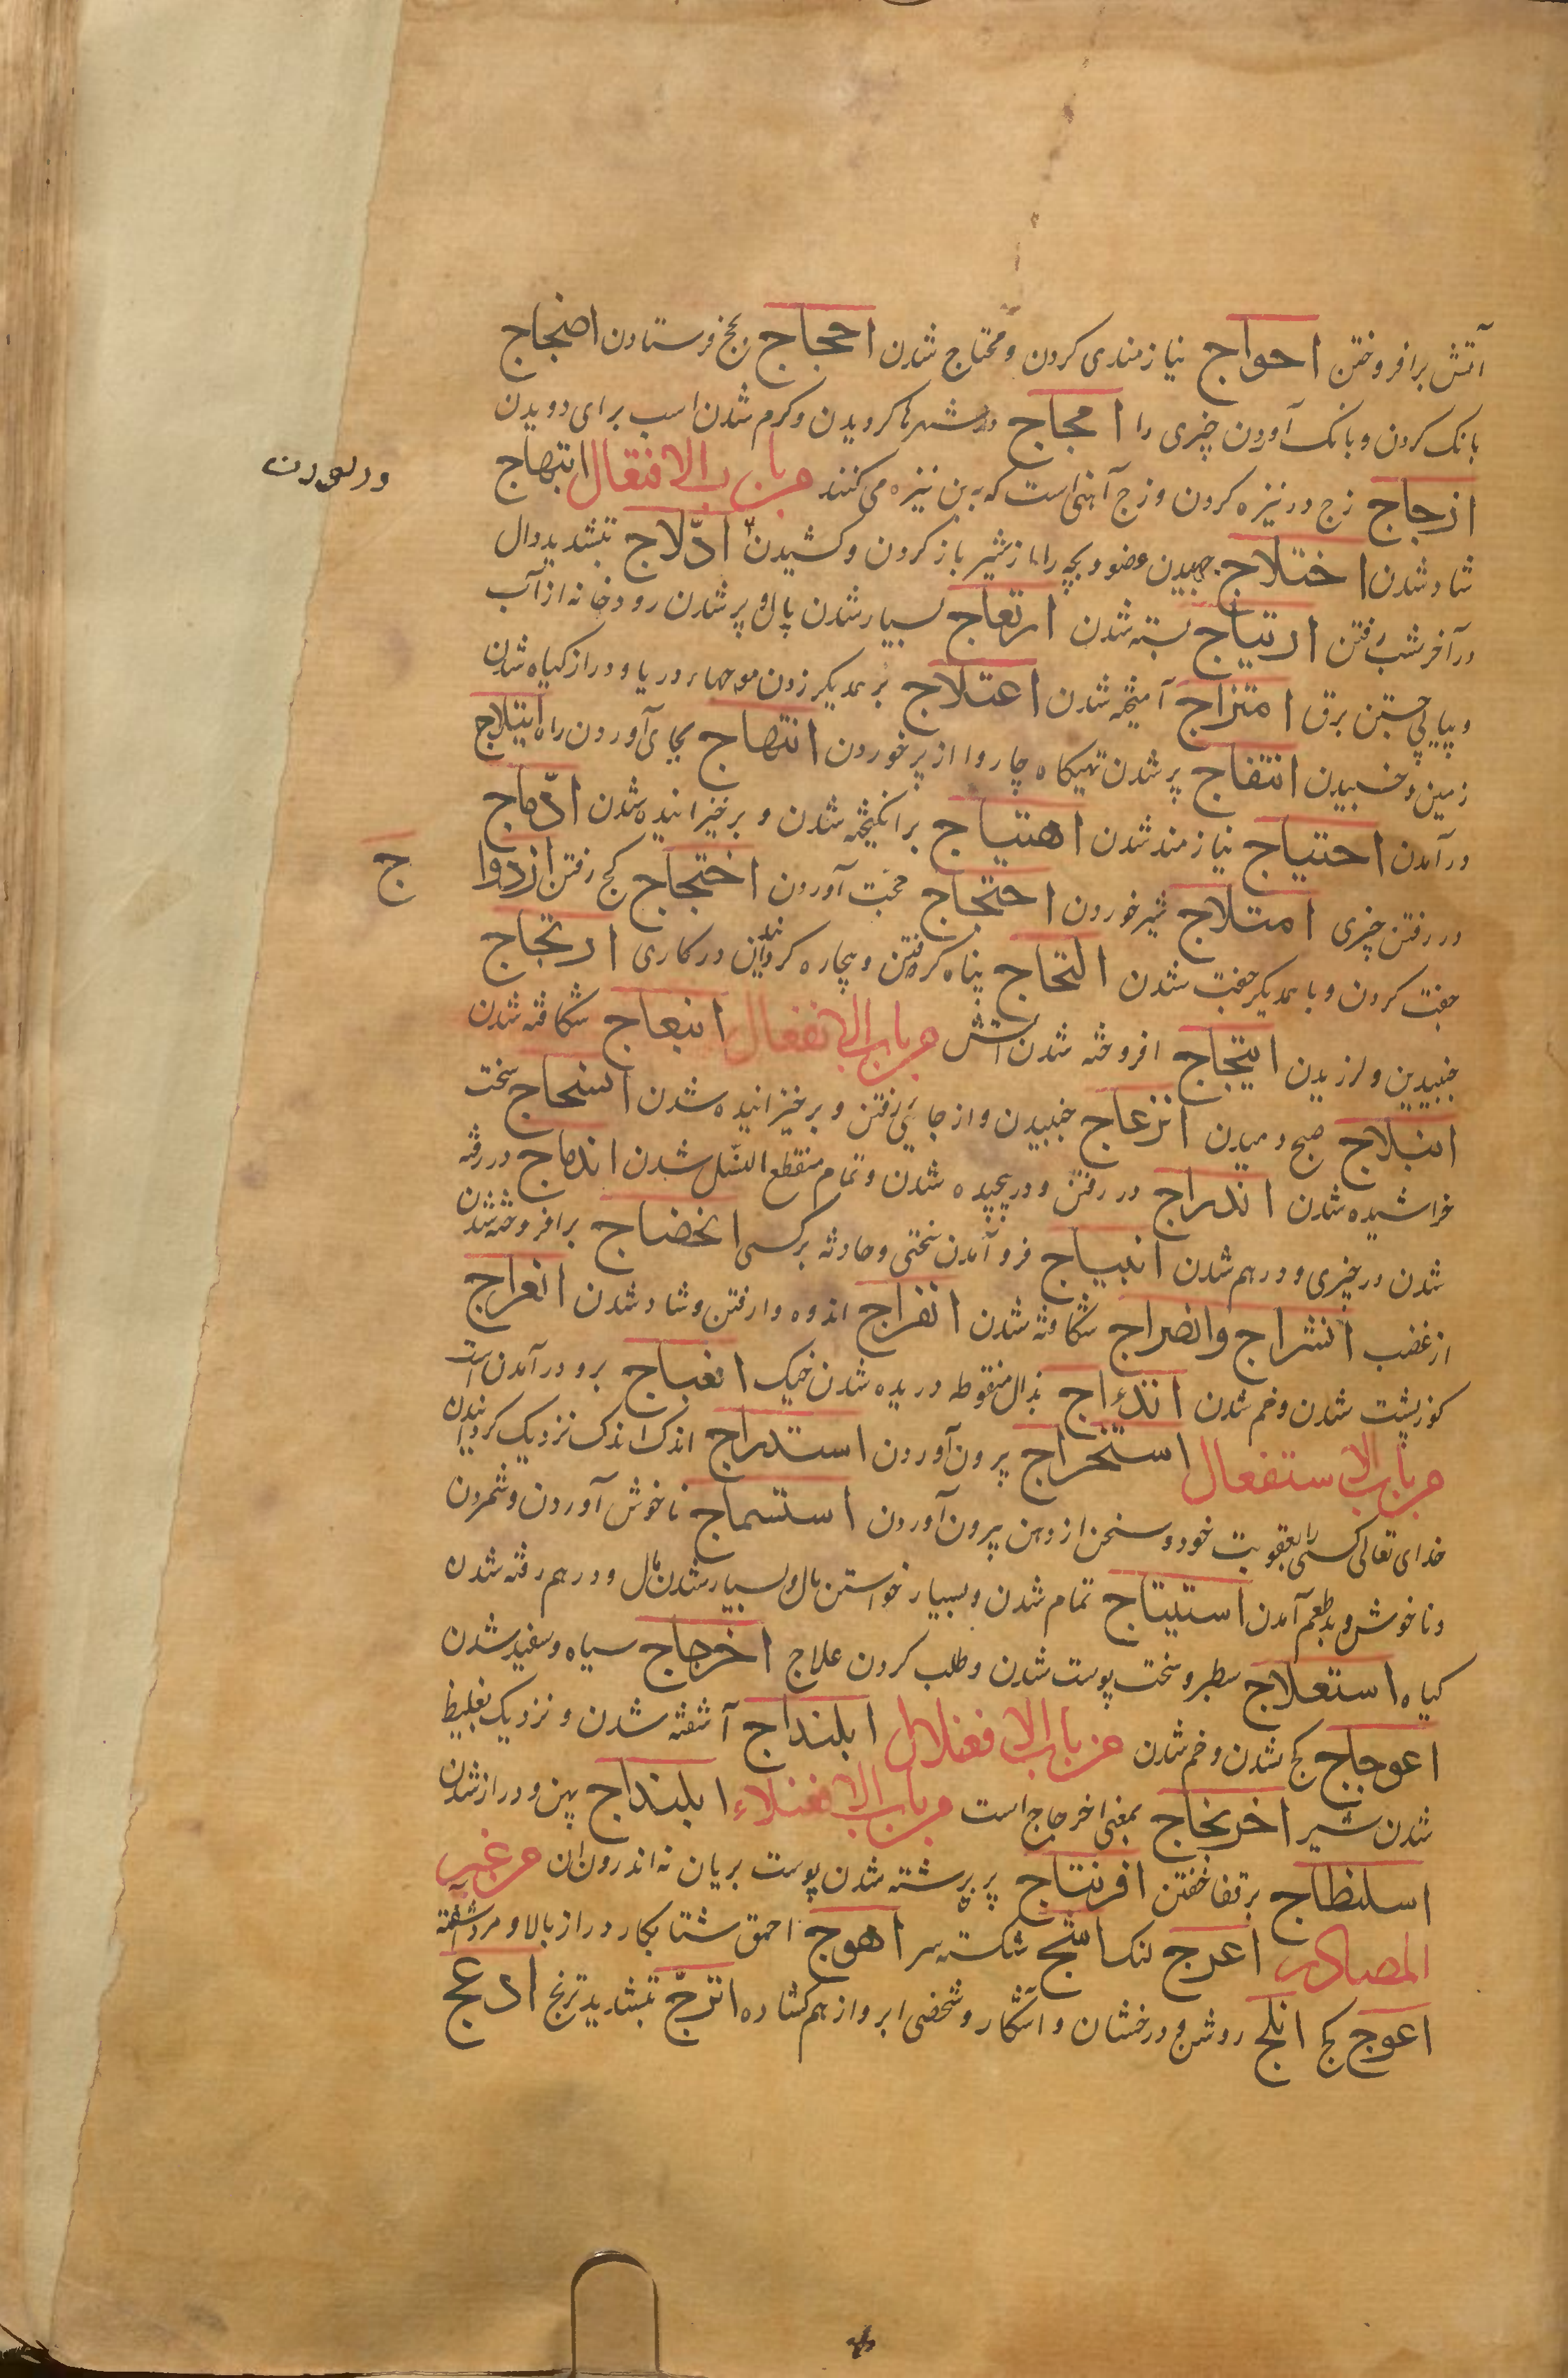 آتش برافروختن احواج نیازمندی کردن و محتاج شدن احجاج بحج فرستادن اضجاج
بانک کردن و بانک آوردن چیزی را امجاج در شهرها کردیدن و کرم شدن اسب برای دویدن
ازجاج زج در نیزه کردن و زج آهنی است که به بن نیزه می کنند من باب الافتعال ابتهاج
شاد شدن اختلاج جهیدن عضو و بچه را از شیر باز کردن و کشیدن ادّلاج بتشدید دال
در آخر شب رفتن ارتیاج بسته شدن ارتعاج بسیار شدن مال و پر شدن رودخانه از آب
و پیاپی جستن برق امتزاج آمیخته شدن اعتلاج بر یکدیکر زدن موجهاء دریا و دراز کیاه شدن
زمین و خسبیدن انتفاج پر شدن تهیکاه چاروا از پر خوردن انتهاج بجای آوردن راه ایتلاج
در آمدن احتیاج نیازمند شدن اهتیاج برانکیخته شدن و برخیزانیده شدن ادّماج
در رفتن چیزی امتلاج شیر خوردن احتجاج حجت آوردن اختجاج کج رفتن ازدوا
ج
جفت کردن و با یکدیکر جفت شدن التحاج پناه کرفتن و بیچاره کردانیدن در کاری ارتجاج
جنبیدین و لرزیدن ایتجاج افروخته شدن آتش من باب الانفعال انبعاج شکافته شدن
انبلاج صبح دمیدن انزعاج جنبیدن و از جایی رفتن و برخیزانیده شدن انسحاج سخت
خراشیده شدن اندراج در رفتن و درپیچیده شدن و تمام منقطع النسّل شدن اندماج در رفته
شدن در چیزی و درهم شدن انبیاج فرو آمدن سختی و حادثه بر کسی انخضاج برافروخته شدن
از غضب انشراج وانضراج شکافته شدن انفراج اندوه وا رفتن و شاد شدن انعراج
کوزپشت شدن و خم شدن انذءاج بذال منقوطه دریده شدن خیک انعباج برو در آمدن است
من باب الاستفعال استخراج بیرون آوردن استدراج اندک اندک نزدیک کردانیدن
خدای تعالی کسی را بعقوبت خود و سخن از دهن بیرون آوردن استسماج ناخوش آوردن و شمردن
و ناخوش و بدطعم آمدن استیتاج تمام شدن و بسیار خواستن مال و بسیار شدن مال و درهم رفته شدن
کیاه استعلاج سطبر و سخت پوست شدن و طلب کردن علاج اخرجاج سیاه و سفید شدن
اعوجاج کج شدن و خم شدن من باب الافعنلال ابلنداج آشفته شدن و نزدیک بغلیظ
شدن شیر اخرنجاج بمعنی اخرجاج است من باب الافعنلاء ابلنداج پهن و دراز شدن
اسلنطاج بر قفا خفتن افرنتاج پر برشته شدن پوست بریان نه اندرون آن من غیر
المصادر اعرج لنک اشج شکسته سر اهوج احمق شتابکار دراز بالا و مرد آشفته
اعوج کج ابلج روشن و درخشان و آشکار و شخصی ابرو از هم کشاده اترجّ بتشدید ترنج ادعج